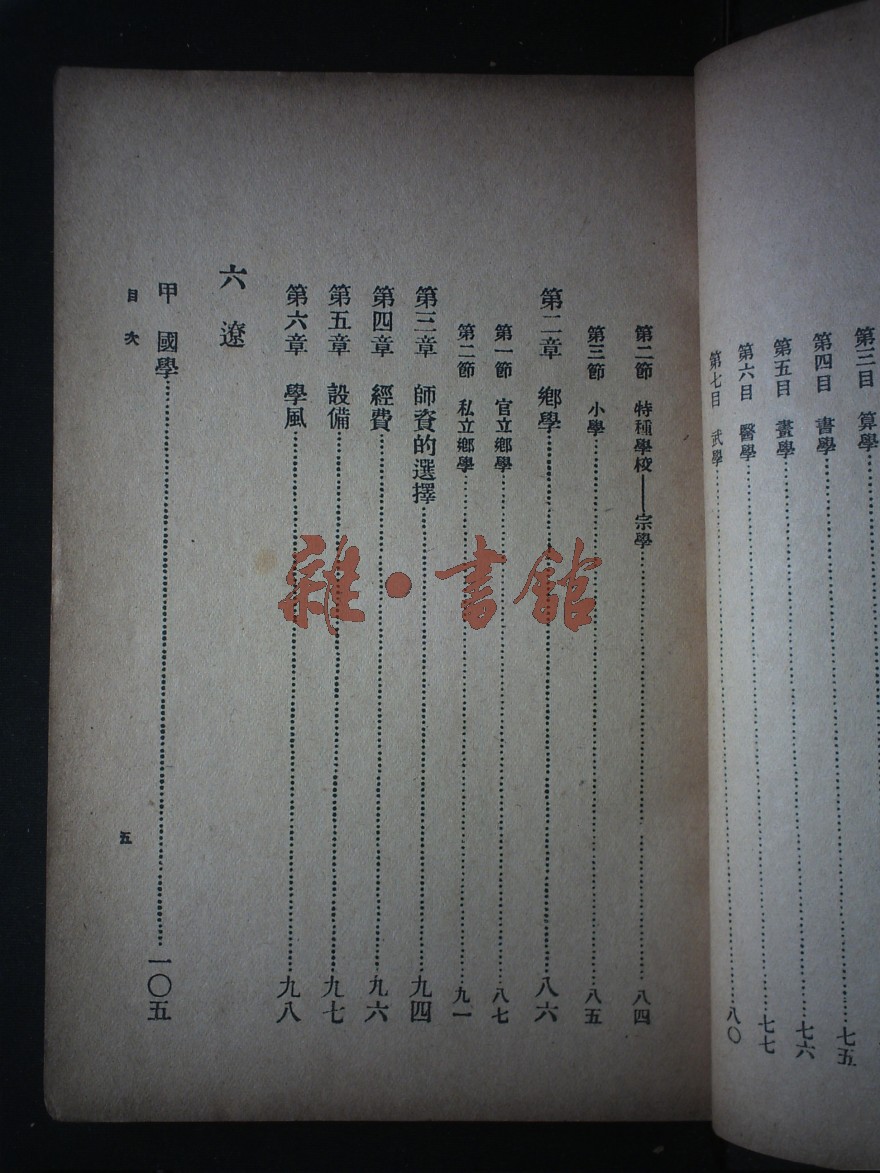 第三目 算學 七五
第四目 書學 七六
第五目 畫學 七七
第六目 醫學
第七目 武學 八〇
第二節 特種學校——宗學 八四
第三節 小學 八五
第二章 鄉學 八六
第一節 官立鄉學 八七
第二節 私立鄉學 九一
第三章 師資的選擇 九四
第四章 經費 九六
第五章 設備 九七
第六章 學風 九八
六 遼
甲 國學 一〇五
目次
五
雜·書館